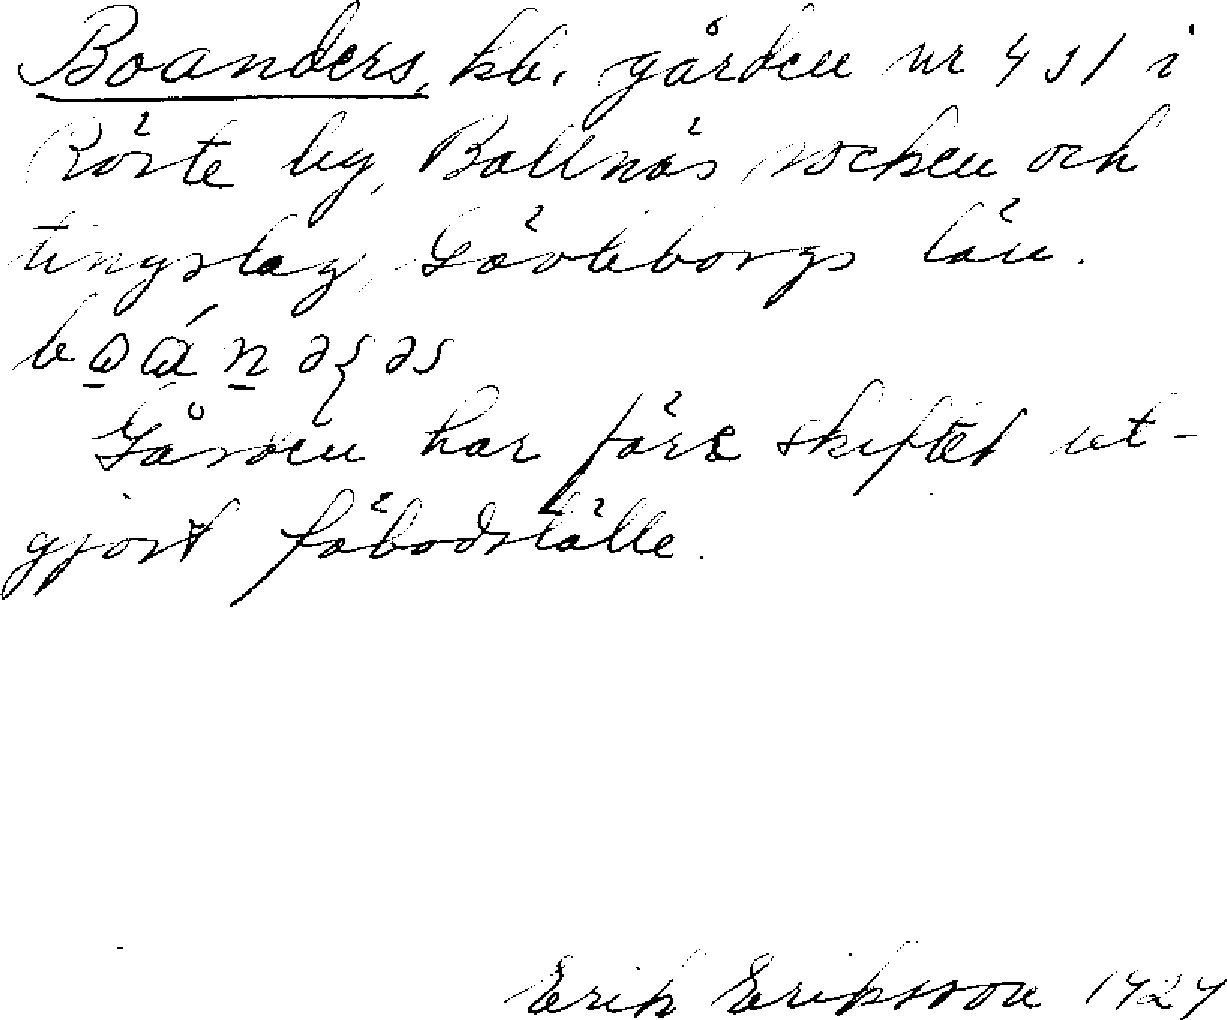 Boanders, kb. gården nr 4 s1 i
Röste by, Bollnäs socken och
tingslag, Gävleborgs län.
Gården har före skiftet ut-
gjort fäbodställe.
Erik Eriksson 1929